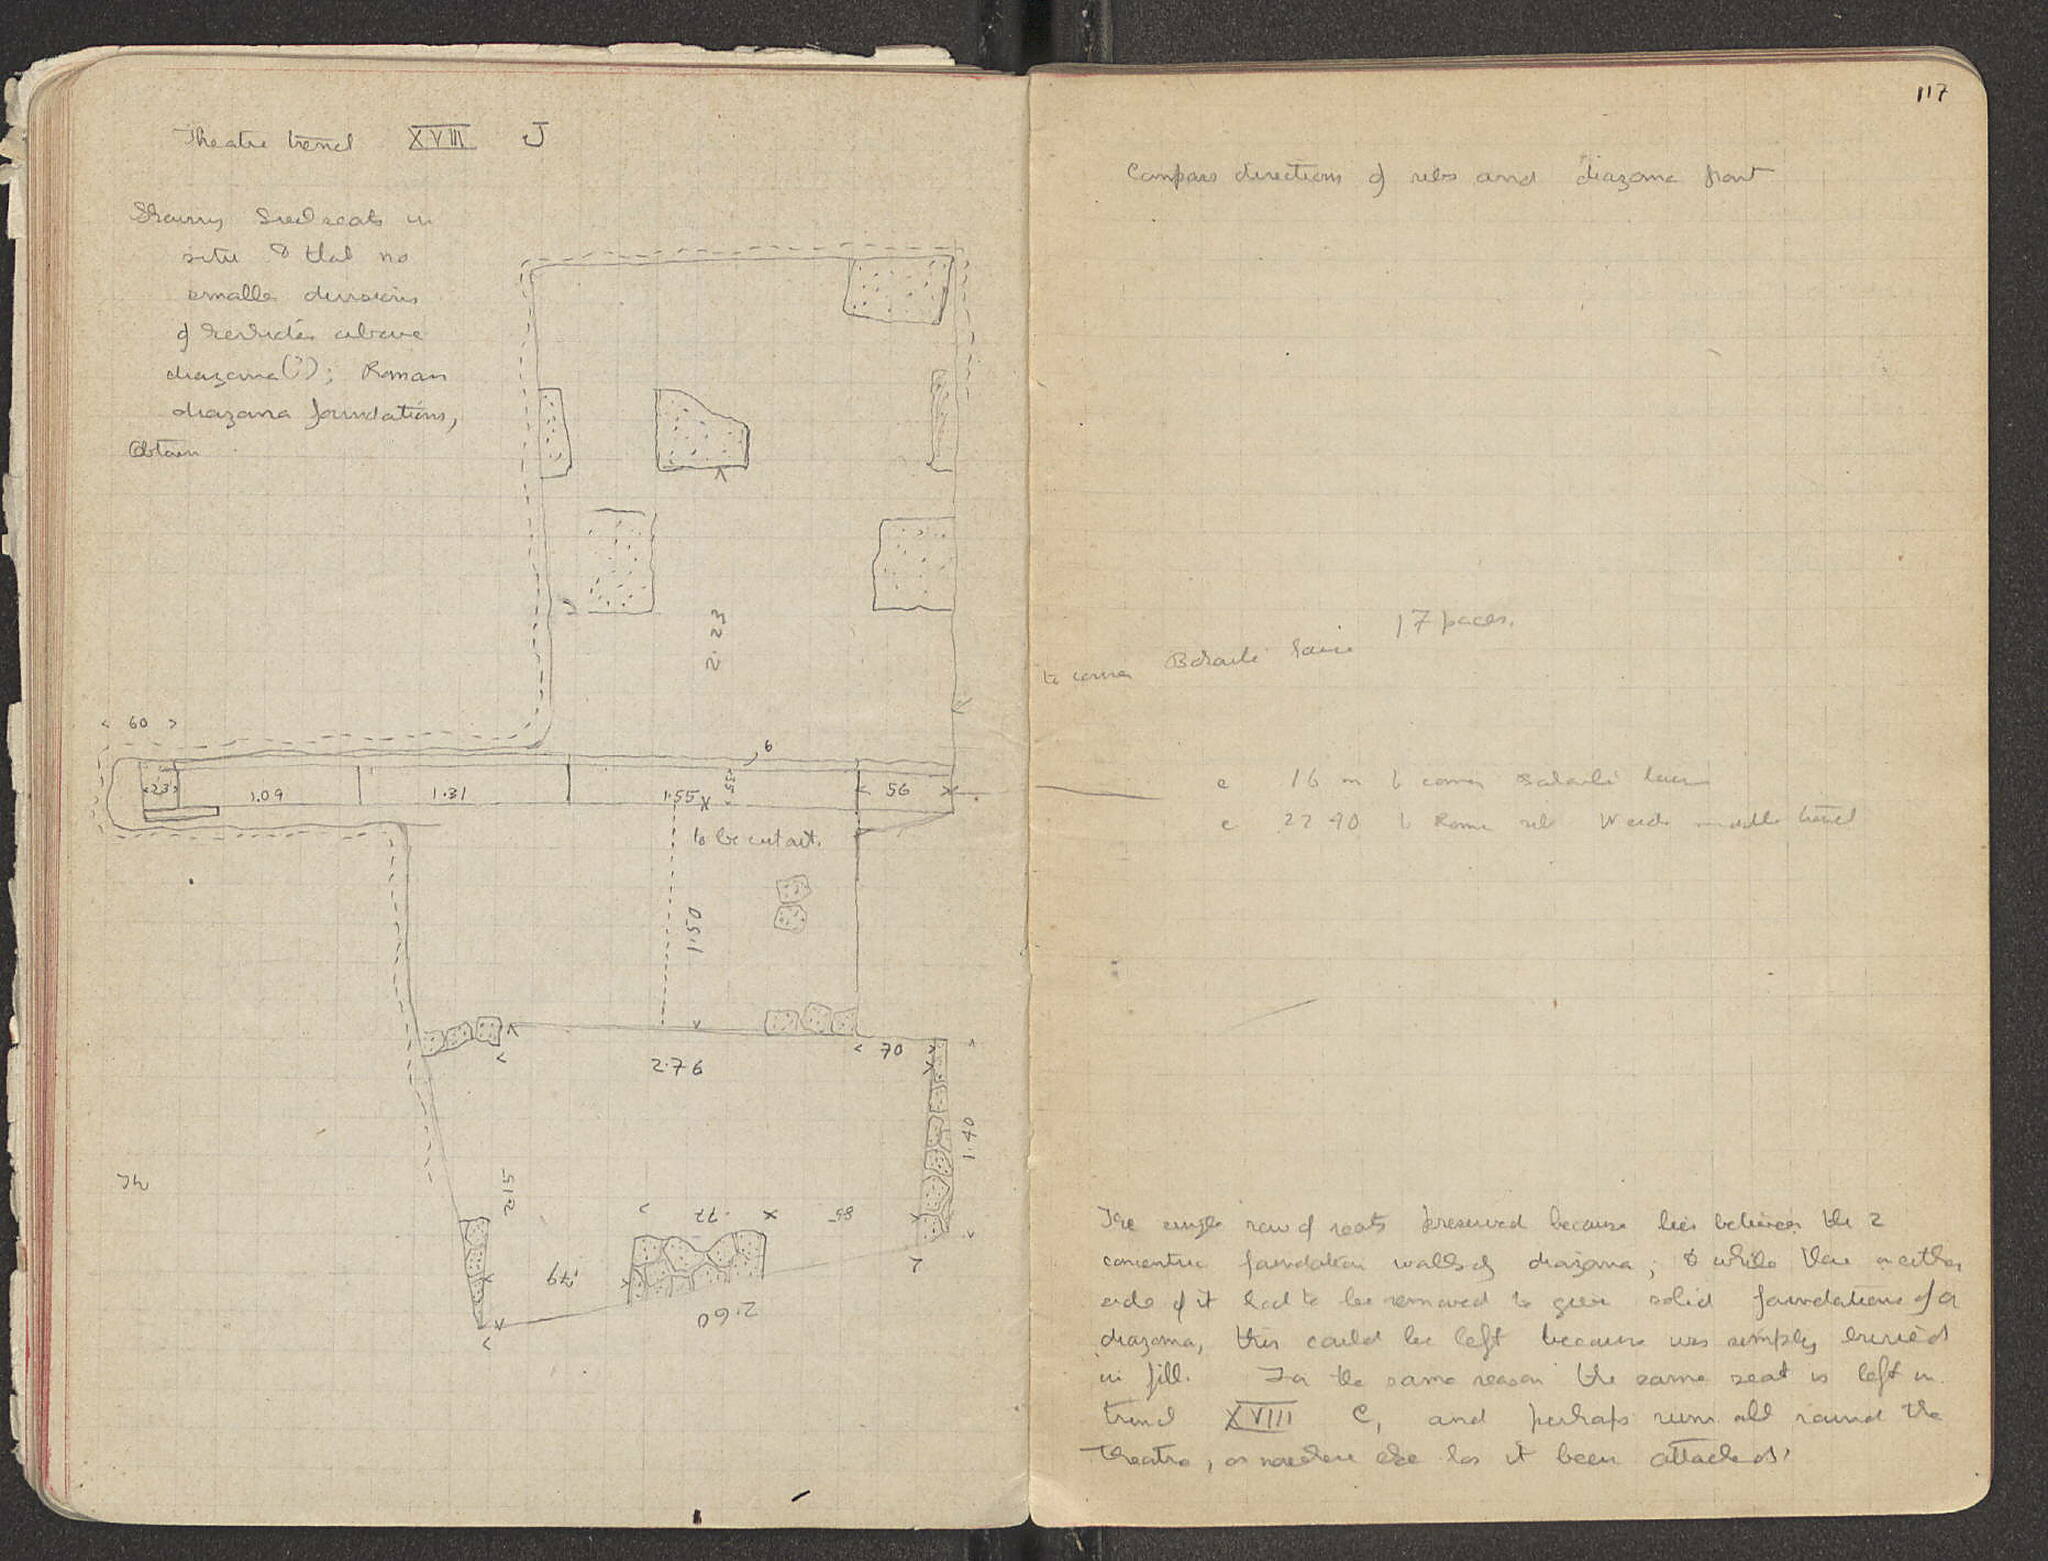 Theatre trench XVIII J
Showing Greek seats in
situ & that no
smaller divisions
of kerkides above
diazoma (?); Roman
diazoma foundations,
Obtain
2.23
< 60 >
6
<23>
1.09
1.31
1.55
55
< 56 >
to be cut out.
1.50
2.76
< 70 >
1.40
2.15
.72
85
.79
2.60
Th
117
Compass directions of ribs and diazoma front
17 paces.
to corner
c 16 m to corner
c 22 90 to Roman rib W end middle trench
The single row of seats preserved because lies between the 2
concentric foundation walls of diazoma; & while those on either
side of it had to be removed to give solid foundations of a
diazoma, this could be left because was simply buried
in fill. For the same reason the same seat is left in
trench XVIII C, and perhaps runs all round the
theatre, as nowhere else has it been attacked.